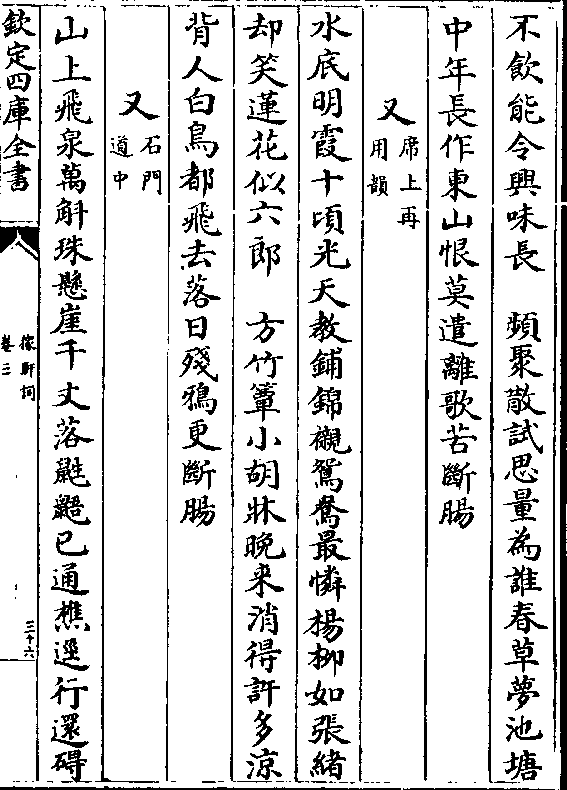 不飲能令興味長　頻聚散試思量為誰春草夢池塘
中年長作東山恨莫遣離歌苦斷腸
又席上再用韻
水底明霞十頃光天教鋪錦襯鴛鴦最憐楊柳如張緒
却笑蓮花似六郎　方竹簟小胡牀晚來消得許多涼
背人白鳥都飛去落日殘鴉更斷腸
又石門道中
山上飛泉萬斛珠懸崖千丈落鼪鼯已通樵逕行還礙
欽定四庫全書
稼軒詞
卷三
三十六